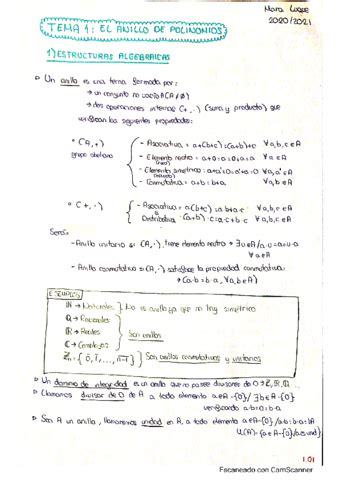 Mara Luque
2020/2021
TEMA 1: EL ANILLO DE POLINOMIOS
1) ESTRUCTURAS ALGEBRAICAS
Un anillo es una terna formada por:
→ un conjunto no vacío A (A≠∅)
→ dos operaciones internas (+,·) (suma y producto) que
verifican las siguientes propiedades:
(A,+) - Asociativa = a+(b+c)=(a+b)+c ∀a,b,c∈A
grupo abeliano - Elemento neutro = a+0=0+a=a ∀a∈A
- Elemento simétrico = a+a'=0=a'+a ∀a,a'∈A
- Conmutativa = a+b=b+a ∀a,b∈A
(+,·) - Asociativa = a(b·c)=(a·b)·c ∀a,b,c∈A
Distributiva ∀a,b,c∈A
Será:
- Anillo unitario si (A,·), tiene elemento neutro → ∃u∈A/a·u=a=u·a
∀a∈A
- Anillo conmutativo si (A,·) satisface la propiedad conmutativa:
(a·b=b·a), ∀a,b∈A
EJEMPLOS
ℕ → Naturales } No es anillo ya que no hay simétrico
ℚ → Racionales
ℝ → Reales } Son anillos
ℂ → Complejos
ℤn = {0,1,...,n-1} } Son anillos conmutativos y unitarios
Un dominio de integridad es un anillo que no posee divisores de 0 → ℤ,ℝ,ℚ...
Llamamos divisor de 0 de A a todo elemento a∈A-{0}/ ∃b∈A-{0}
verificando a·b=0=b·a
Sea A un anillo, llamaremos unidad en A, a todo elemento a∈A-{0}/a·b=b·a=1
U(A)={a∈A-{0}/a es unid}
1.01
Escaneado con CamScanner